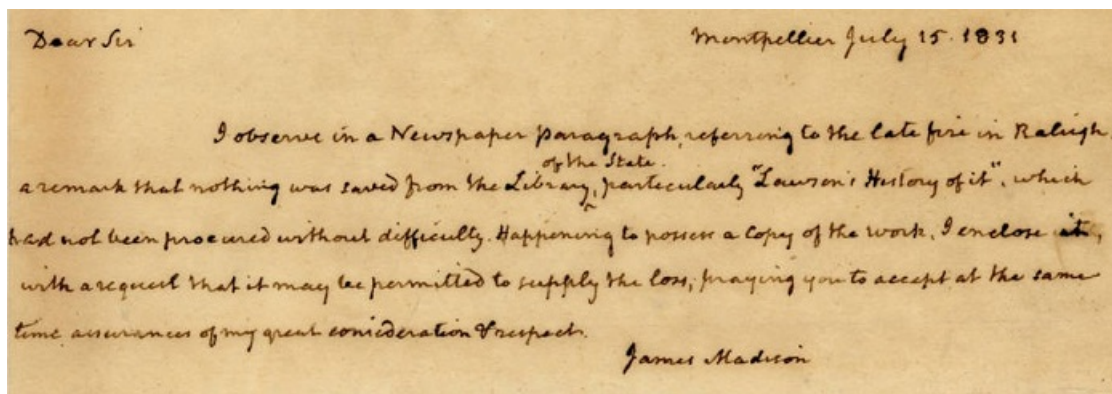 Dear Sir Montpellier July 15. 1831
I observe in a Newspaper paragraph, referring to the late fire in Raleigh
of the State.
a remark that nothing was saved from the Library, particularly "Lawson's History of it", which
had not been procured without difficulty. Happening to possess a copy of the work, I enclose it,
with a request that it may be permitted to supply the loss; praying you to accept at the same
time assurances of my great consideration & respect.
James Madison